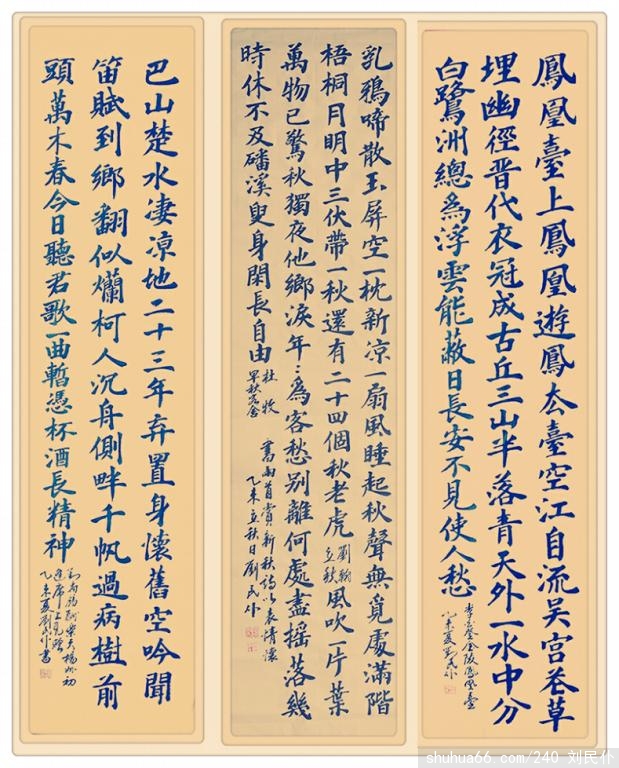 鳳凰臺上鳳凰遊鳳去臺空江自流吴宫花草
埋幽徑晋代衣冠成古丘三山半落青天外一水中分
白鷺洲總為浮雲能蔽日長安不見使人愁
李白登金陵鳳凰臺
乙未夏劉民仆
乳鴉啼散玉屏空一枕新凉一扇風睡起秋聲無覓處滿階
梧桐月明中三伏帶一秋還有二十四個秋老虎劉翰立秋風吹一片葉
萬物已驚秋獨夜他鄉淚年〻為客愁别離何處盡摇落幾
時休不及磻溪叟身閑長自由
杜牧
早秋客舍
書兩首賞新秋詩以表情懷
乙未立秋日劉民仆
巴山楚水凄凉地二十三年弃置身懷舊空吟聞
笛賦到鄉翻似爛柯人沉舟側畔千帆過病樹前
頭萬木春今日聽君歌一曲暫憑杯酒長精神
劉禹錫酬樂天揚州初
逢席上見贈
乙未夏劉民仆書
shuhua66.com/240 刘民仆